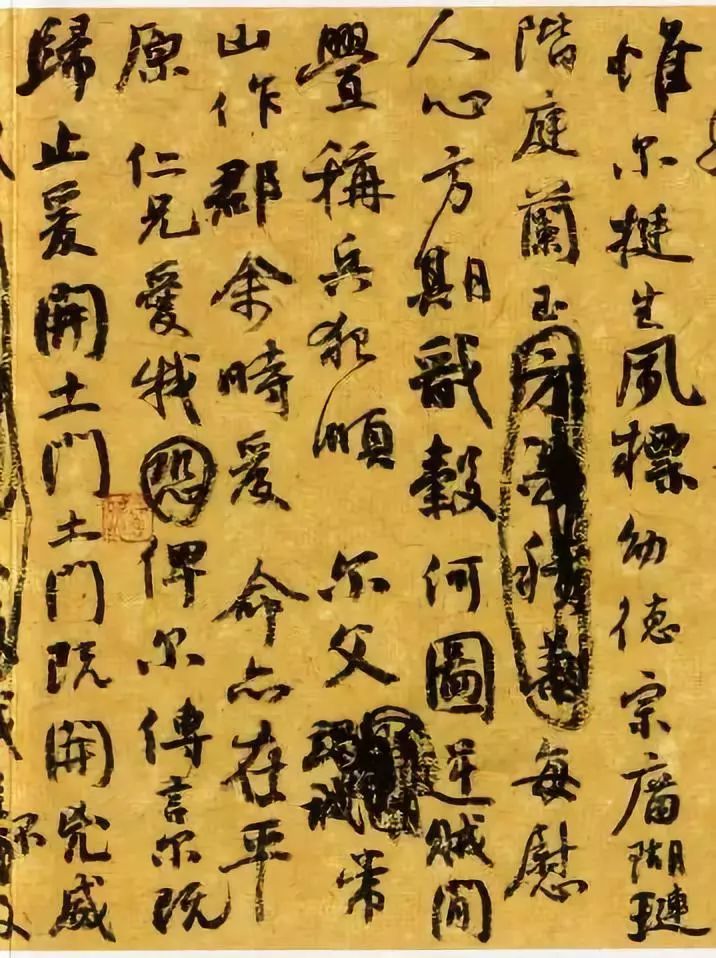 惟尔挺生夙標幼德宗廟瑚璉
階庭蘭玉每慰
人心方期戩穀何圖逆賊間
舋稱兵犯順尔父竭誠常
山作郡余時受命亦在平
原仁兄愛我恐俾尔傳言尔既
歸止爰開土門土門既開兇威